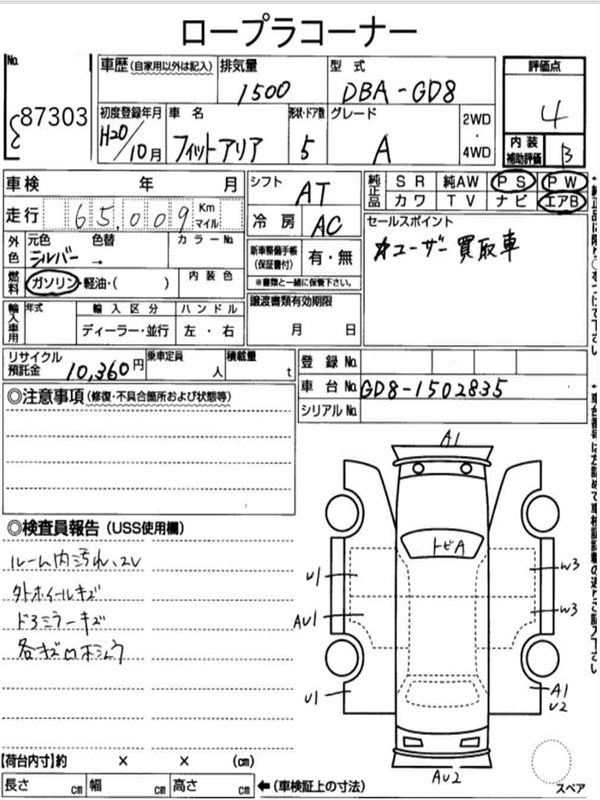 ロープラコーナー
No.
87303
車歴 (自家用以外は記入)
排気量
1500
型式
DBA-GD8
評価点
4
初度登録年月
H20/10月
車名
フィットアリア
形状・ドア数
5
グレード
A
2WD
・
4WD
内装
補助評価
B
車検 年 月
シフト
AT
純正品
SR 純AW PS PW
カワ TV ナビ エアB
走行 65,009 Km マイル
冷房
AC
セールスポイント
ユーザー買取車
外色
元色 色替
シルバー →
カラーNo.
新車整備手帳
(保証書付)
有・無
※書類と一緒に保管下さい。
燃料
ガソリン・軽油・( )
内装色
譲渡書類有効期限
月 日
輸入車用
年式
輸入区分
ディーラー・並行
ハンドル
左・右
リサイクル
預託金
10,360円
乗車定員
人
積載量
t
登録No.
車台No.
GD8-1502835
シリアルNo.
◎注意事項 (修復・不具合箇所および状態等)
◎検査員報告 (USS使用欄)
ルーム内汚れ、
外ホイールキズ
ドアミラーキズ
A1
トビA
U1
W3
AU1
W3
U1
A1
U2
AU2
スペア
【荷台内寸】約 × × (cm)
長さ cm 幅 cm 高さ cm
←(車検証上の寸法)